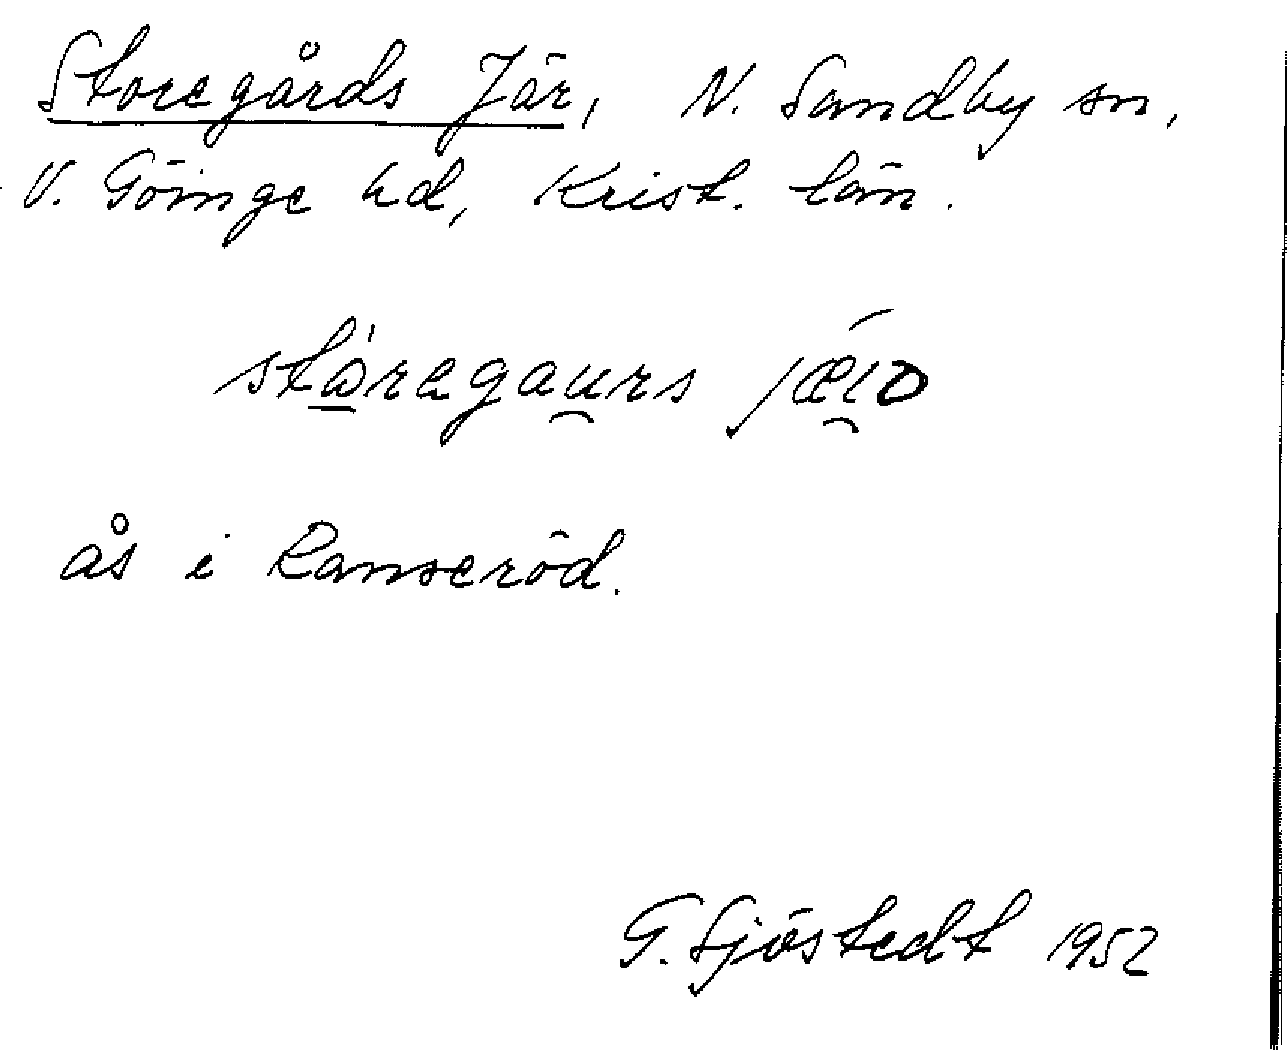 Storegårds Jär, N. Sandby sn,
V. Göinge hd, Krist. län.
stó̱regau̯rs jǽi̯ɒ
ås i Ranseröd.
G. Sjöstedt 1952